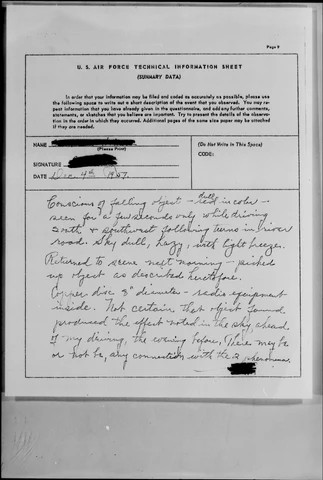 Page 9
U. S. AIR FORCE TECHNICAL INFORMATION SHEET
(SUMMARY DATA)
In order that your information may be filed and coded as accurately as possible, please use
the following space to write out a short description of the event that you observed. You may re-
peat information that you have already given in the questionnaire, and add any further comments,
statements, or sketches that you believe are important. Try to present the details of the observa-
tion in the order in which they occurred. Additional pages of the same size paper may be attached
if they are needed.
NAME
(Please Print)
SIGNATURE
DATE Dec. 4th 1957
(Do Not Write in This Space)
CODE:
Conscious of falling object - dull red in color -
seen for a few seconds only while driving
south & southwest following turns in river
road. Sky dull, hazy, with light breeze.
Returned to scene next morning - picked
up object as described heretofore.
Copper disc 3" diameter - radio equipment
inside. Not certain that object found
produced the effect noted in the sky ahead
of my driving, the evening before, There may be
or not be, any connection with the 2 phenomena.